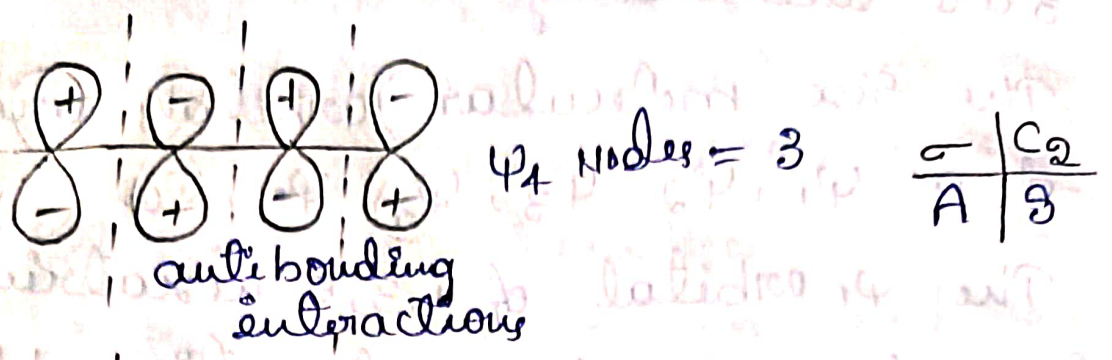 + - + -
ψ4 Nodes = 3
σ | C2
A | S
- + - +
antibonding
interactions